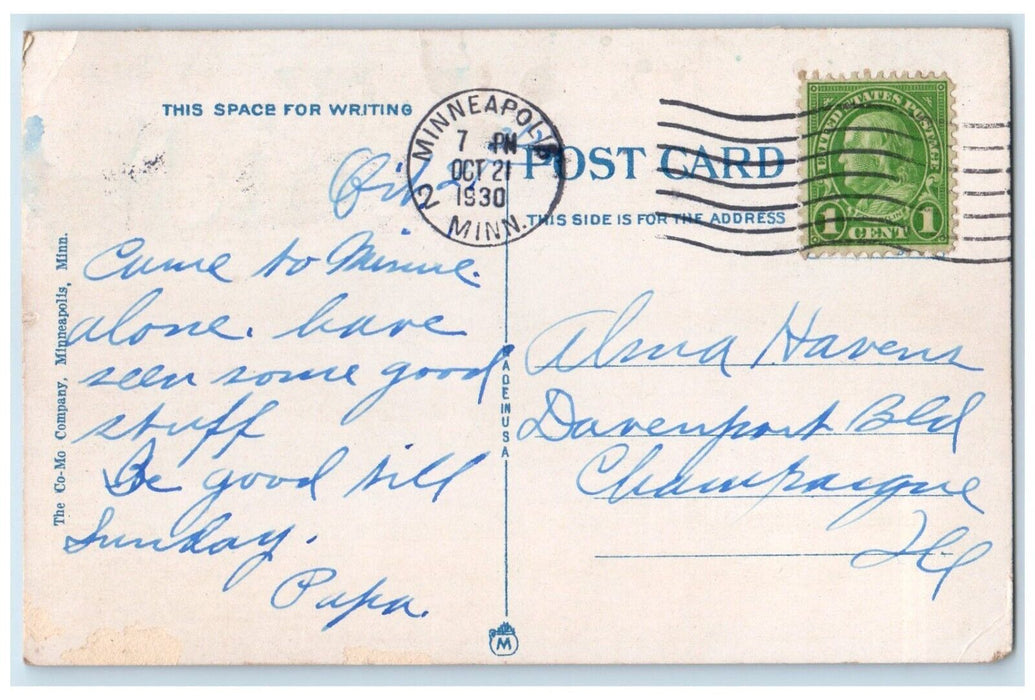 THIS SPACE FOR WRITING
MINNEAPOLIS
7 PM
OCT 21
1930
MINN.
2
POST CARD
THIS SIDE IS FOR THE ADDRESS
UNITED STATES POSTAGE
1 CENT 1
Came to Minne.
alone. have
seen some good
stuff
Be good till
Sunday.
Papa.
Alma Havens
Davenport Bld
Champaigne
Ill
The Co-Mo Company, Minneapolis, Minn.
MADE IN USA
M